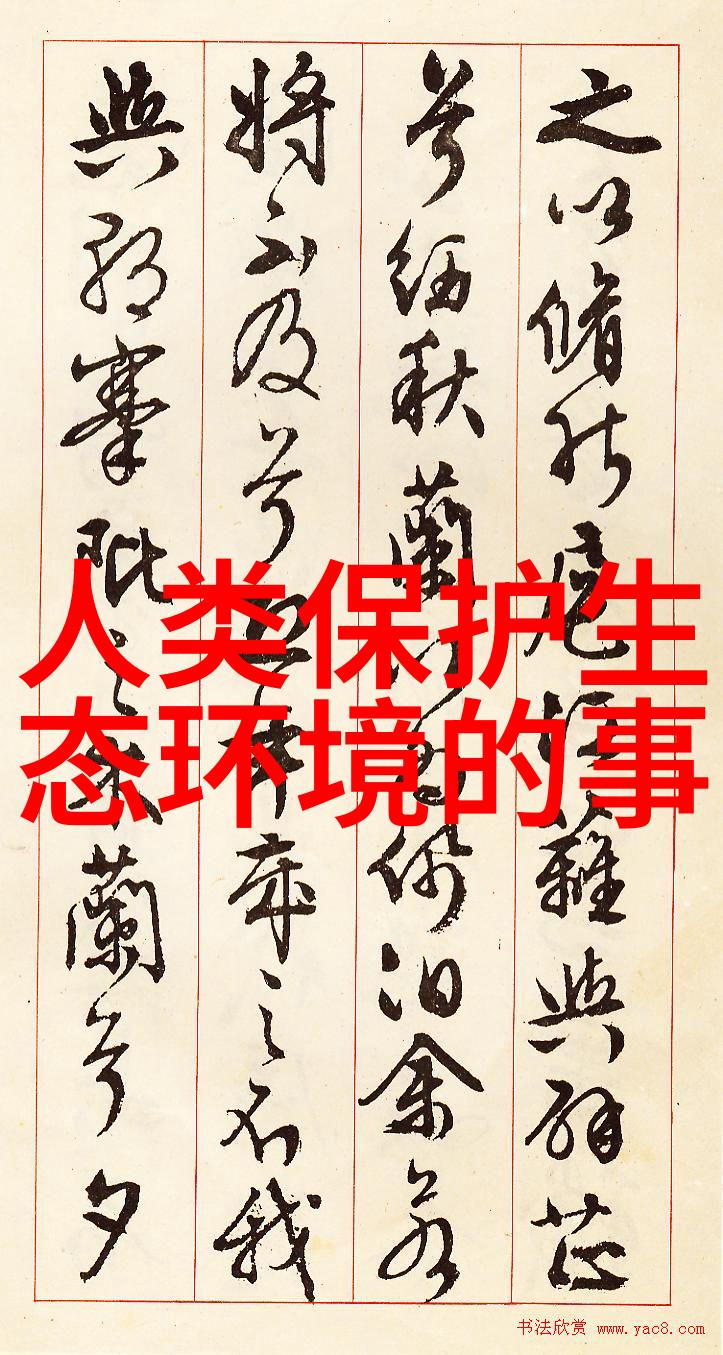 之以脩能扈江離與辟芷
兮紉秋蘭以為佩汩余若
將不及兮恐年歲之不我
與朝搴阰之木蘭兮夕
人类保护生
态环境的事
书法欣赏 www.yac8.com